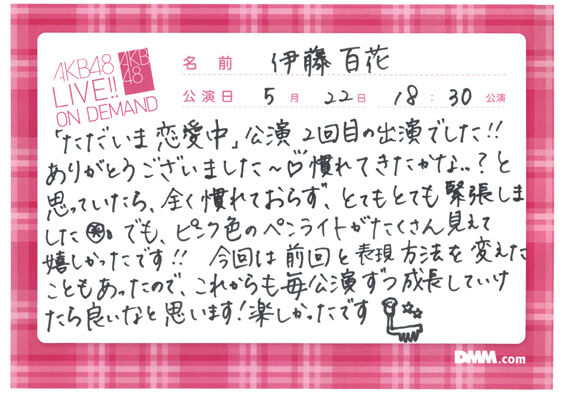 AKB48
LIVE!!
ON DEMAND
AKB
48
名前 伊藤百花
公演日 5月22日 18:30公演
「ただいま恋愛中」公演2回目の出演でした!!
ありがとうございました〜♡慣れてきたかな…?と
思っていたら、全く慣れておらず、とてもとても緊張しま
した。でも、ピンク色のペンライトがたくさん見えて
嬉しかったです!! 今回は前回と表現方法を変えた
こともあったので、これからも毎公演ずつ成長していけ
たら良いなと思います!楽しかったです
DMM.com